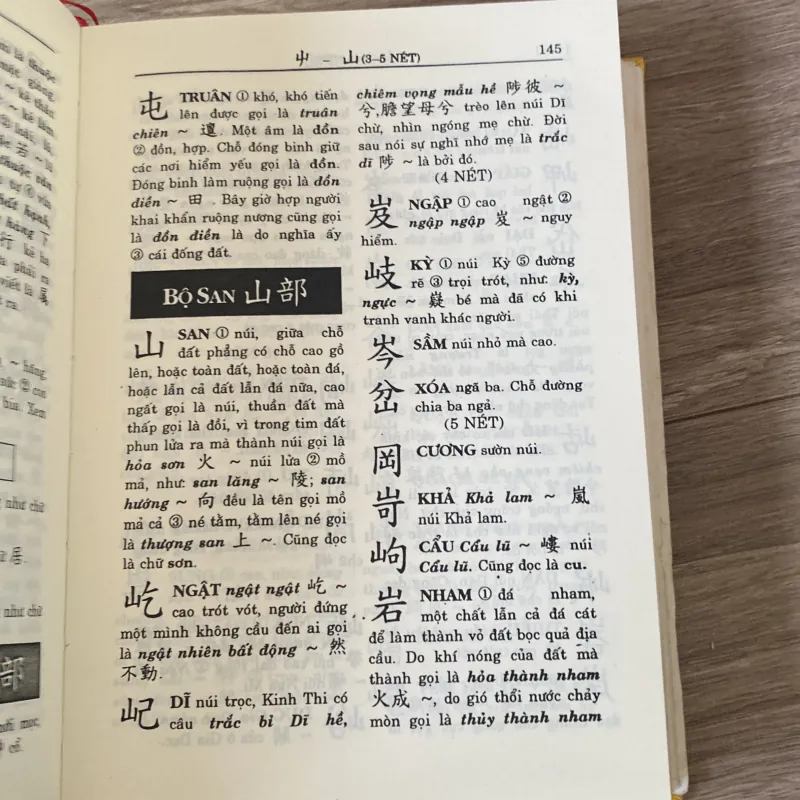 屮 – 山 (3–5 NÉT) 145
屯 TRUÂN ① khó, khó tiến
lên được gọi là truân
chiên ~ 邅. Một âm là đồn
② đồn, hợp. Chỗ đóng binh giữ
các nơi hiểm yếu gọi là đồn.
Đóng binh làm ruộng gọi là đồn
điền ~ 田. Bây giờ hợp người
khai khẩn ruộng nương cũng gọi
là đồn điền là do nghĩa ấy
③ cái đống đất.
BỘ SAN 山部
山 SAN ① núi, giữa chỗ
đất phẳng có chỗ cao gồ
lên, hoặc toàn đất, hoặc toàn đá,
hoặc lẫn cả đất lẫn đá nữa, cao
ngất gọi là núi, thuần đất mà
thấp gọi là đồi, vì trong tim đất
phun lửa ra mà thành núi gọi là
hỏa sơn 火 ~ núi lửa ② mồ
mả, như: san lăng ~ 陵; san
hướng ~ 向 đều là tên gọi mồ
mả cả ③ né tằm, tằm lên né gọi
là thượng san 上 ~. Cũng đọc
là chữ sơn.
屹 NGẬT ngật ngật 屹 ~
cao trót vót, người đứng
một mình không cầu đến ai gọi
là ngật nhiên bất động ~ 然
不動.
屺 DĨ núi trọc, Kinh Thi có
câu trắc bỉ Dĩ hề,
chiêm vọng mẫu hề 陟彼 ~
兮,瞻望母兮 trèo lên núi DĨ
chừ, nhìn ngóng mẹ chừ. Đời
sau nói sự nghĩ nhớ mẹ là trắc
dĩ 陟 ~ là bởi đó.
(4 NÉT)
岌 NGẬP ① cao ngất ②
ngập ngập 岌 ~ nguy
hiểm.
岐 KỲ ① núi Kỳ ⑤ đường
rẽ ③ trọi trót, như: kỳ,
ngực ~ 嶷 bé mà đã có khi
tranh vanh khác người.
岑 SẦM núi nhỏ mà cao.
岔 XÓA ngã ba. Chỗ đường
chia ba ngả.
(5 NÉT)
岡 CƯƠNG sườn núi.
岢 KHẢ Khả lam ~ 嵐
núi Khả lam.
岣 CẨU Cẩu lũ ~ 嶁 núi
Cẩu lũ. Cũng đọc là cu.
岩 NHAM ① đá nham,
một chất lẫn cả đá cát
để làm thành vỏ đất bọc quả địa
cầu. Do khí nóng của đất mà
thành gọi là hỏa thành nham
火成 ~, do gió thổi nước chảy
mòn gọi là thủy thành nham